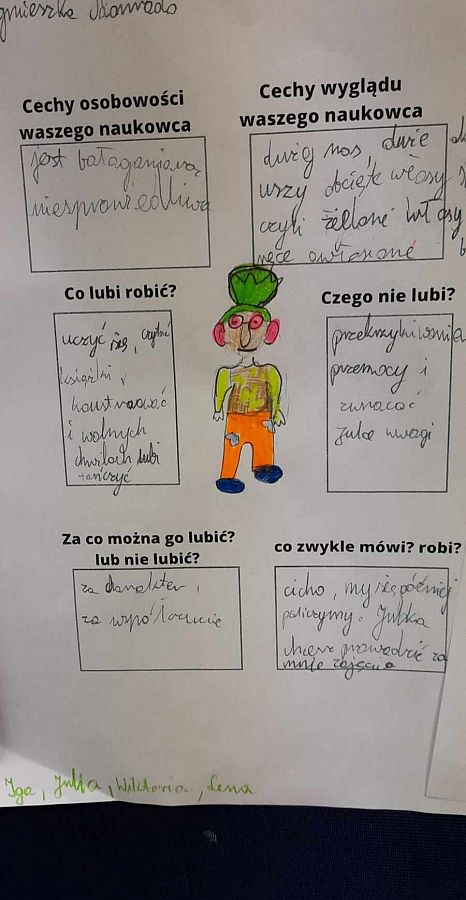 Cechy osobowości
waszego naukowca
jest bałaganiara
niesprawiedliwa
Cechy wyglądu
waszego naukowca
duży nos, dwie
uszy obcięte włosy
czyli zielone włosy
ręce owłosione
Co lubi robić?
uczyć się, czytać
książki,
konstruować
i wolnych
chwilach lubi
tańczyć
Czego nie lubi?
przekrzykiwania
przemocy i
zwracać
Julce uwagi
Za co można go lubić?
lub nie lubić?
za charakter,
za współczucie
co zwykle mówi? robi?
cicho, my się później
policzymy. Julka
chcesz prowadzić za
mnie zajęcia
Iga, Julia, Wiktoria, Lena